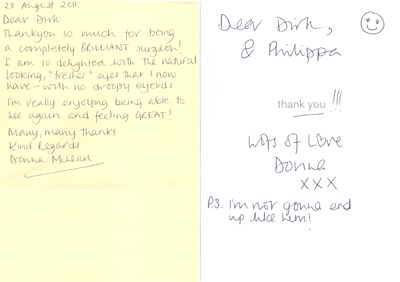 20 August 2011
Dear Dirk
Thankyou so much for being
a completely BRILLIANT surgeon!
I am so delighted with the natural
looking, "fresher" eyes that I now
have - with no droopy eyelids
I'm really enjoying being able to
see again and feeling GREAT!
Many, many thanks
Kind Regards
Donna McLean
Dear Dirk,
& Philippa
thank you !!!
Lots of Love
Donna
X X X
P.S. I'm not gonna end
up like him!